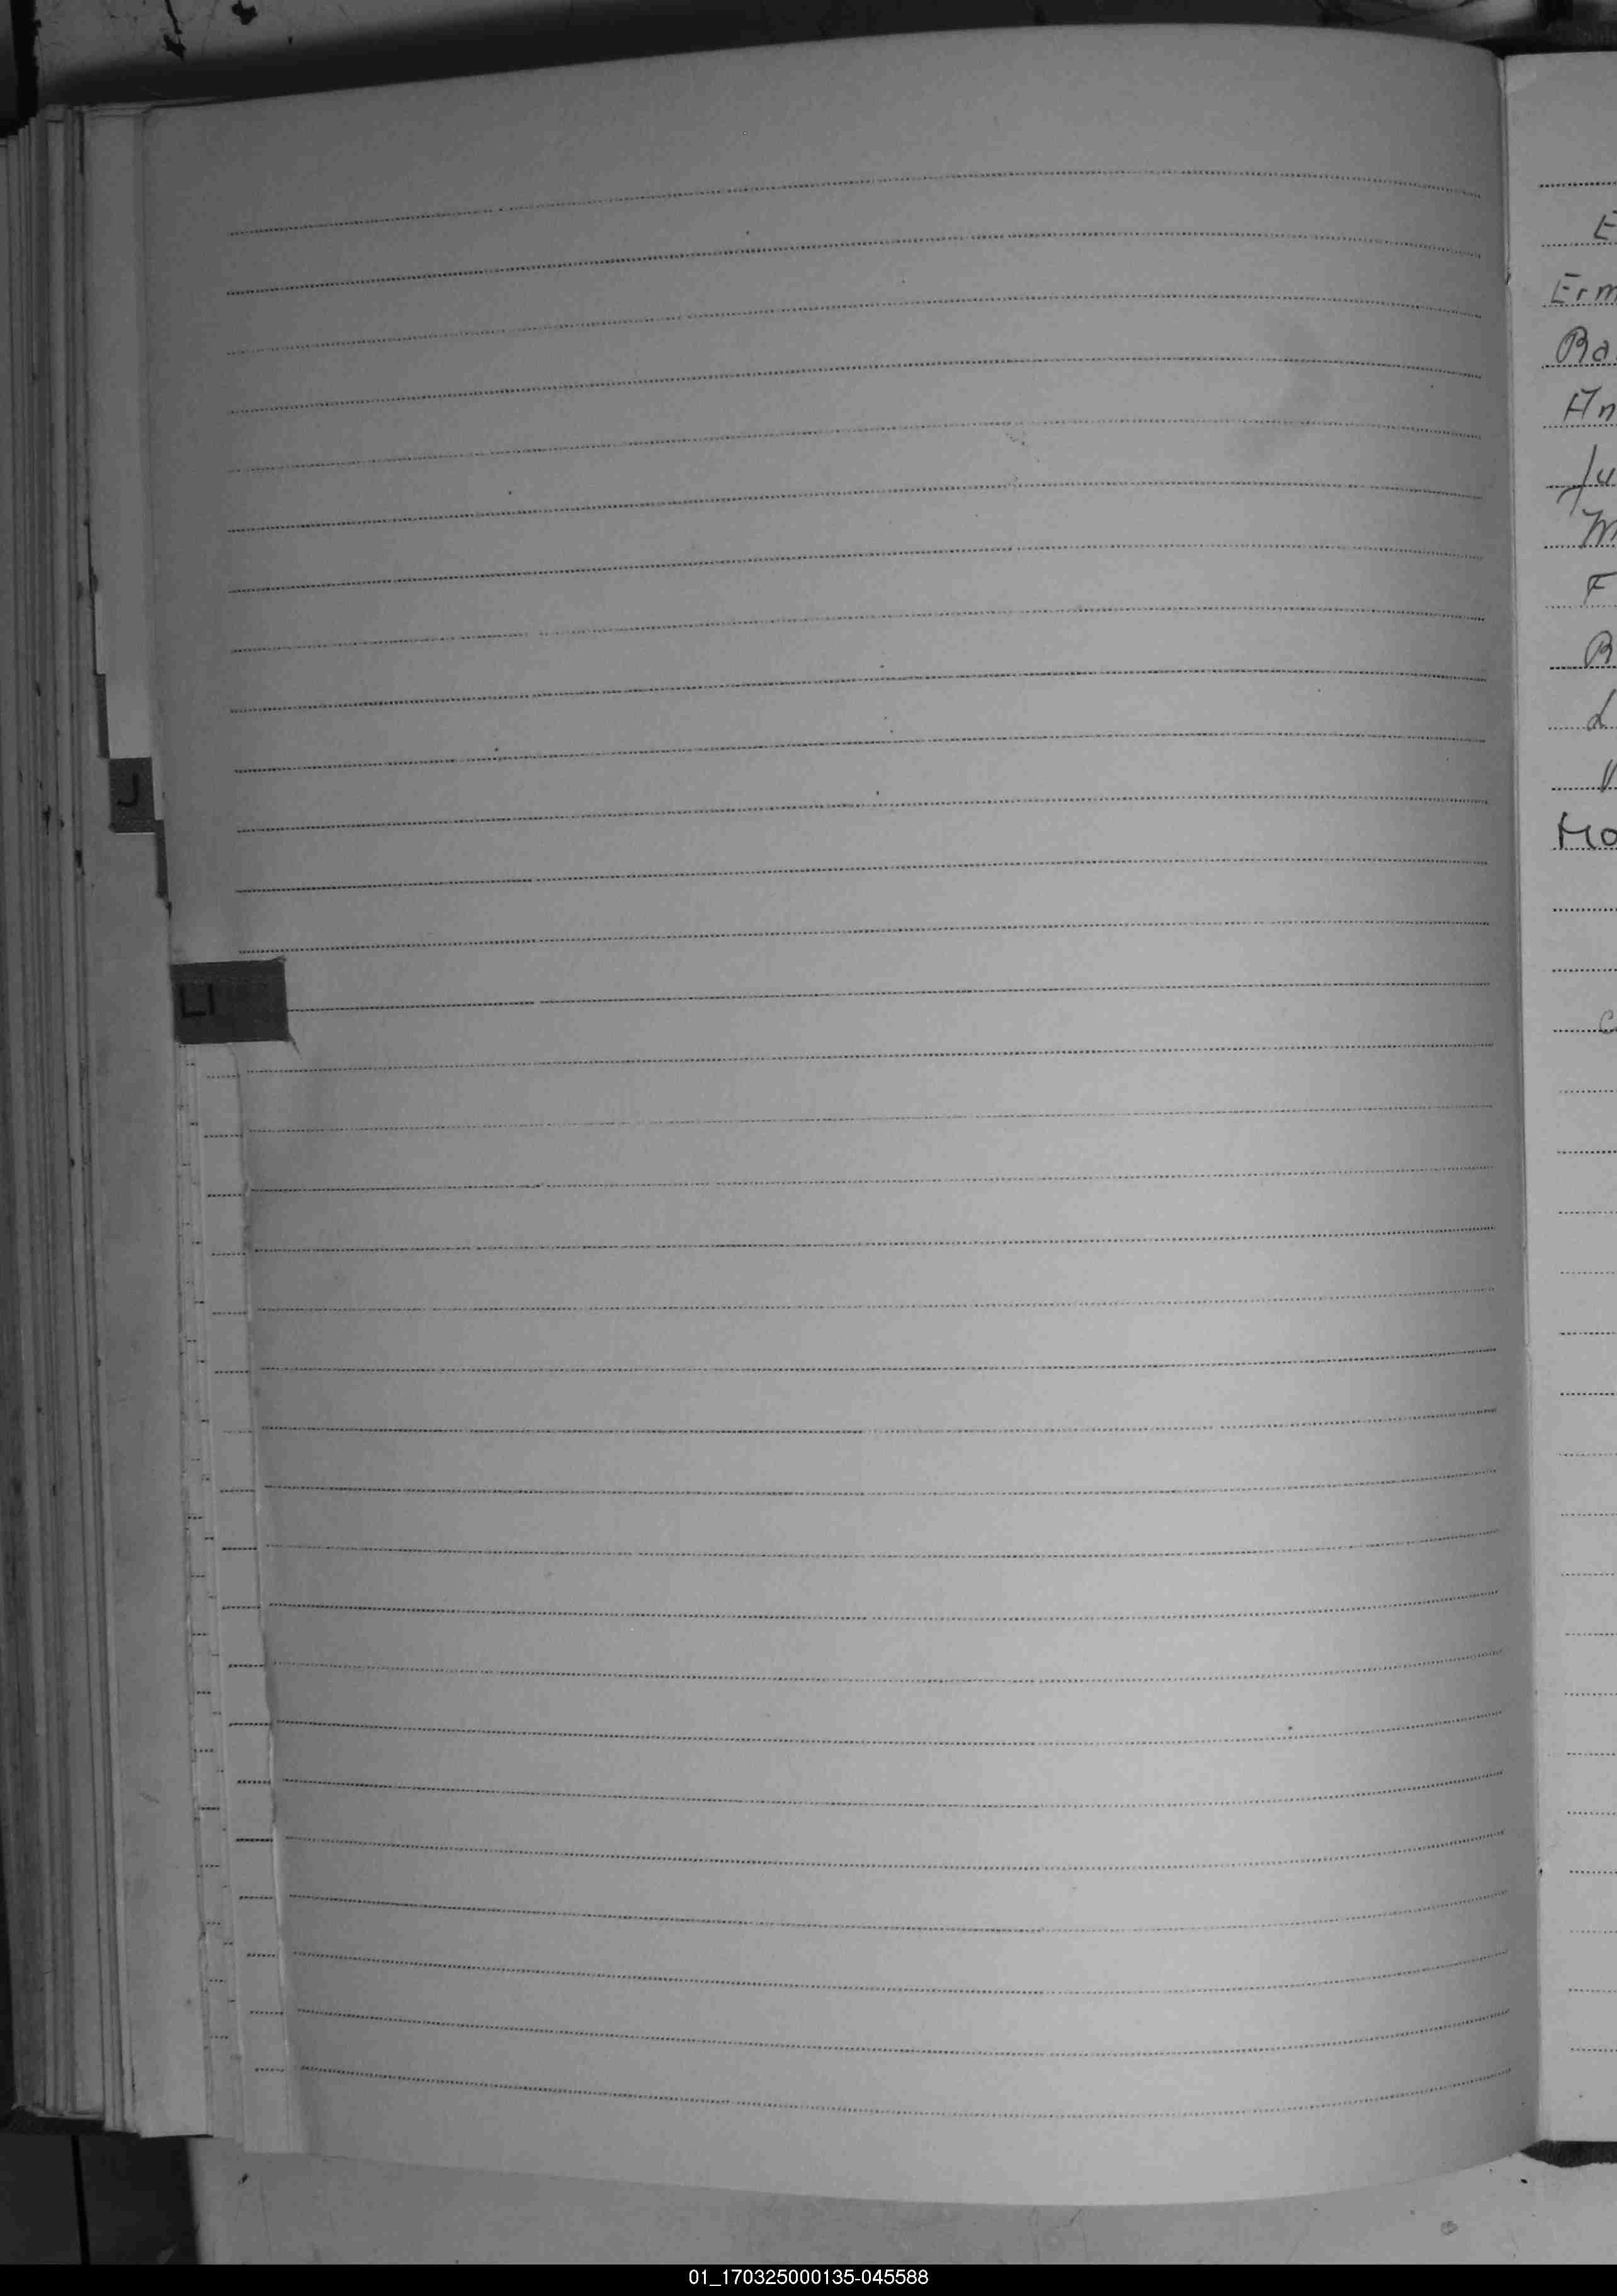 J
LL
E
Erm
Ra
An
Ju
M
F
R
L
V
Ho
01_170325000135-045588